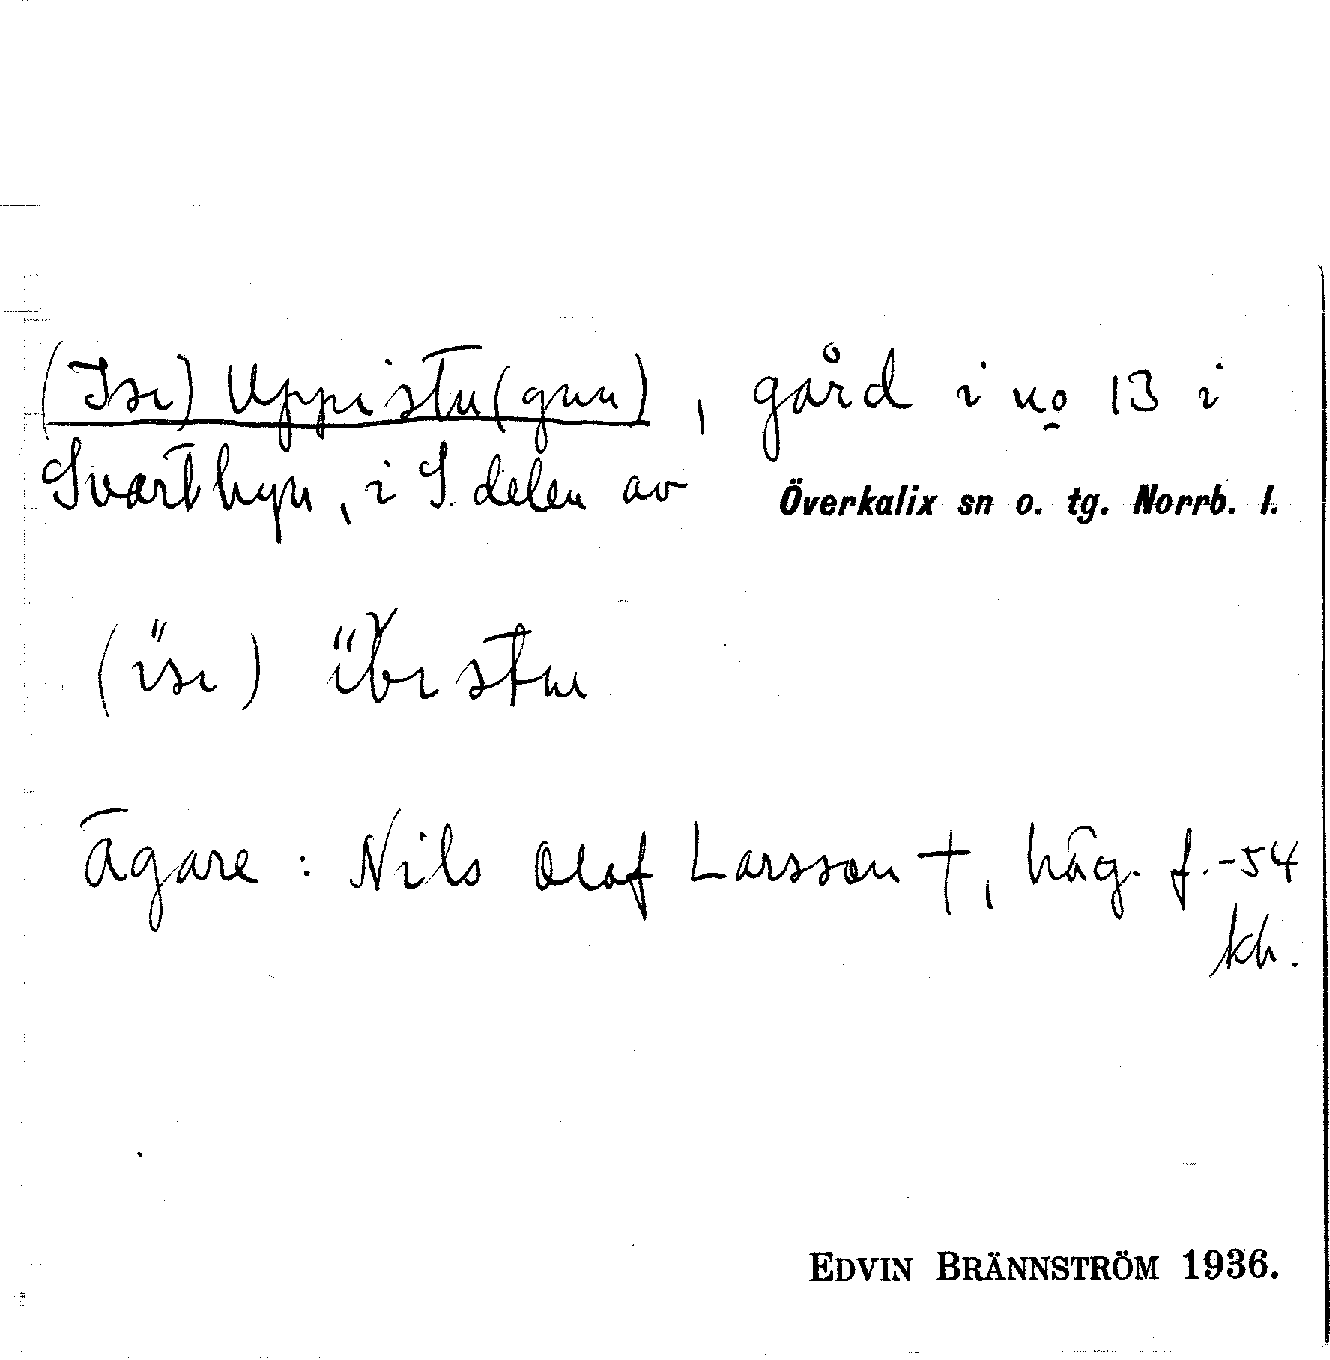 (Isi) Uppistu(gun), gård i no 13 i
Svartbyn, i S. delen av Överkalix sn o. tg. Norrb. l.
Ägare: Nils Olof Larsson †, häg. f. -54
kh.
EDVIN BRÄNNSTRÖM 1936.